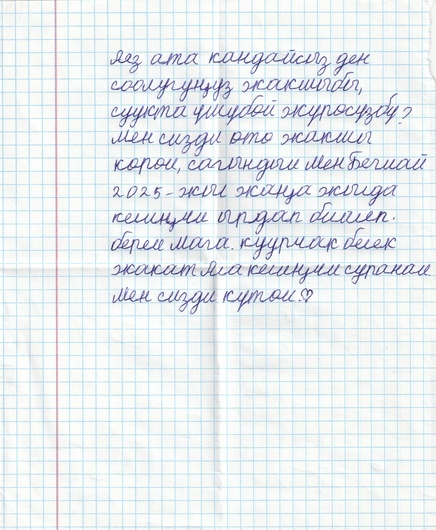 Аяз ата кандайсыз ден
соолугуңуз жакшыбы,
суукта үшүбөй жүрөсүзбү?
Мен сизди ото жакшы
корои, сагындым Мен Бегиай
2025-жыл жаңа жылда
келиңчи ырдап бийлеп.
берем мага. куурчак белек
жакат Ала келиңчи суранам
Мен сизди кутом.♡